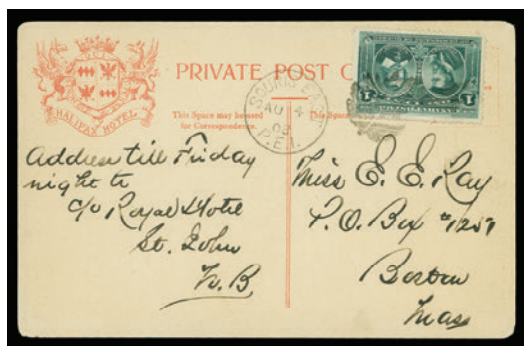 PRIVATE POST C
HALIFAX HOTEL
This Space may be used
for Correspondence.
This Space
SOURIS EAST
AU 4
08
P.E.I.
1
1
Address till Friday
night to
c/o Royal Hotel
St. John
N.B
Miss E. E. Ray
P.O. Box #1257
Boston
Mass